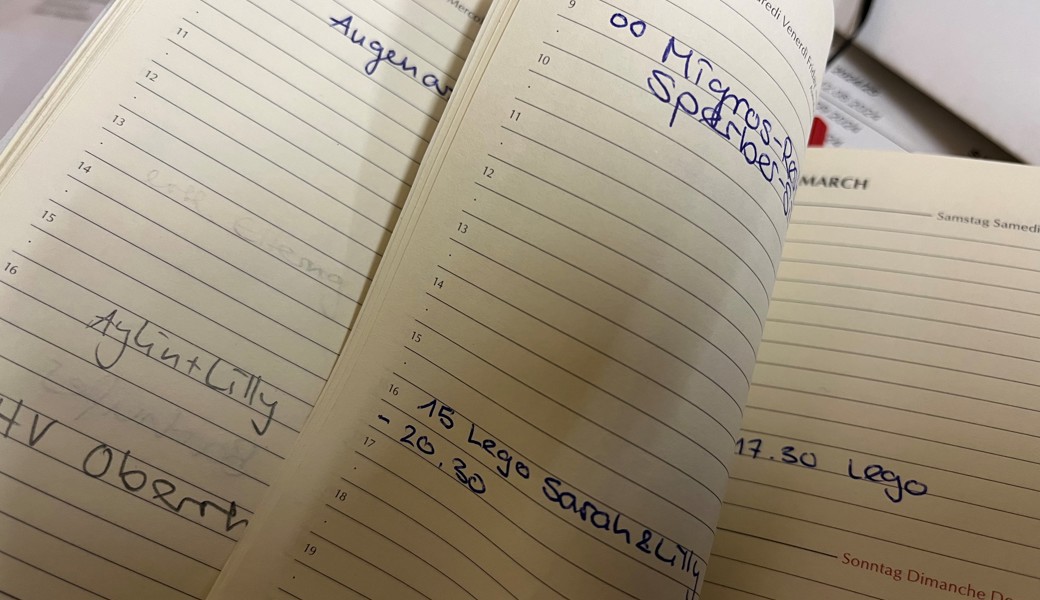 Mercol
11
Augenar
12
13
14
15
16
Aylin+Lilly
HV Oberrh
redi Venerdi Friday
9
00 Migros-
10
Sparber-
11
12
13
14
15
16
15 Lego Sarah & Lilly
17
- 20.30
18
19
MARCH
Samstag Samedi
17.30 Lego
Sonntag Dimanche Do